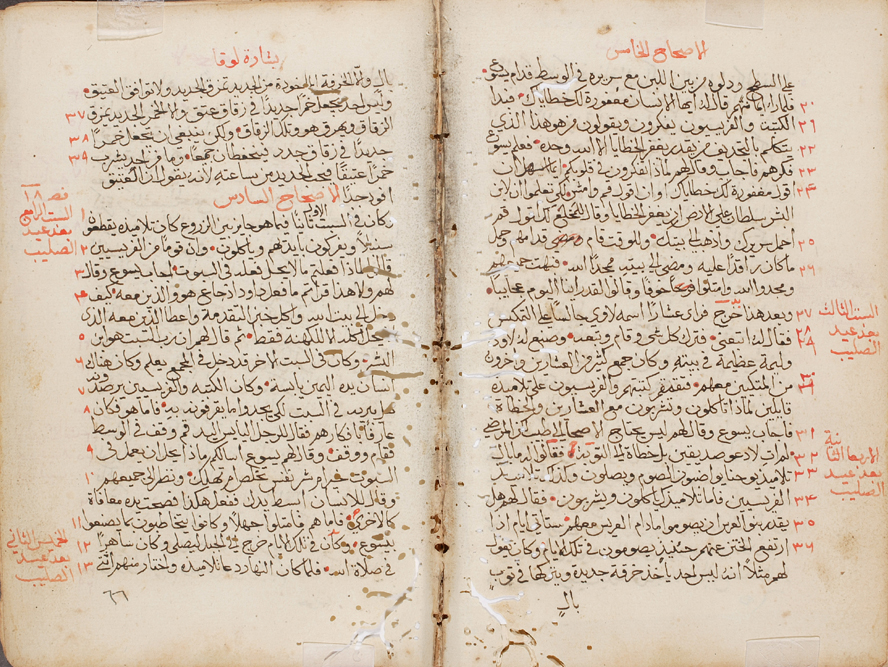 الاصحاح الخامس
على السطح ودلوه من بين اللبن مع سريره في الوسط قدام يسوع
٢٠ فلما راى ايمانهم قال له ايها الانسان مغفورة لك خطاياك فبدا
٢١ الكتبة والفريسيون يفكرون ويقولون من هو هذا الذي
٢٢ يتكلم بالتجديف من يقدر يغفر الخطايا الا الله وحده فعلم يسوع
٢٣ فكرهم فاجاب وقال لهم لماذا تفكرون في قلوبكم ايما اسهل ان
٢٤ اقول مغفورة لك خطاياك او ان اقول قم وامش لكي تعلموا ان لابن
البشر سلطان على الارض ان يغفر الخطايا وقال للمخلع لك اقول قم
٢٥ احمل سريرك واذهب الى بيتك وللوقت قام قدامهم وحمل
٢٦ ما كان راقدا عليه ومضى الى بيته ممجدا الله فبهت جميعهم
ومجدوا الله وامتلوا خوفا وقالوا لقد راينا اليوم عجايبا
٢٧ وبعد هذا خرج فراى عشارا اسمه لاوي جالسا على التمكس
السبت الثالث
بعد عيد
الصليب
٢٨ فقال له اتبعني فترك كل شي وقام وتبعه وصنع له لاوي
٢٩ وليمة عظيمة في بيته وكان جمع كثير من العشارين واخرون
٣٠ من المتكين معهم فتقمقم كتبتهم والفريسيون على تلاميذه
قايلين لماذا تاكلون وتشربون مع العشارين والخطاة
٣١ فاجاب يسوع وقال لهم ليس يحتاج الاصحا الى الطبيب لكن المرضى
الاربعا الثانية
بعد عيد
الصليب
٣٢ لم ات لادعو صديقين بل خطاة الى التوبة فقالوا له ما بال
٣٣ تلاميذ يوحنا يواظبون الصوم ويصلون وكذلك تلاميذ
٣٤ الفريسيين فاما تلاميذك ياكلون ويشربون فقال لهم هل
٣٥ يقدر بنو العرس ان يصوموا ما دام العريس معهم ستاتي ايام اذا
٣٦ ارتفع الختن عنهم حينيذ يصومون في تلك الايام وكان يقول
لهم مثلا انه ليس احد ياخذ خرقة جديدة ويتركها في ثوب
بال
بشارة لوقا
بال والا الخرقة الماخوذة من الجديد تمزق الجديد ولا توافق العتيق
٣٧ وليس احد يجعل خمرا جديدا في زقاق عتيق والا الخمر الجديد يمزق
٣٨ الزقاق ويهرق هو وتلك الزقاق ولكن ينبغي ان يجعل خمرا
٣٩ جديدا في زقاق جدد فيتحفظان جميعا وما من احد يشرب
خمرا عتيقا فيحب الجديد من ساعته لانه يقول ان العتيق
اجود جدا الاصحاح السادس
فصـ ١٨
السبت الرابع
بعد عيد
الصليب
١ وكان في السبت الاول ثانيا فيما هو جاز بين الزروع كان تلاميذه يقطعون
٢ سنبلا ويفركون بايديهم وياكلون وان قوما من الفريسيين
٣ قالوا لماذا فعلتم ما لا يحل فعله في السبوت اجاب يسوع وقال
٤ لهم ولا هذا قراتم ما فعل داود اذ جاع هو والذين معه كيف
دخل الى بيت الله واكل خبز التقدمة واعطا الذين معه الذي
٥ لا يحل اكله الا للكهنة فقط ثم قال لهم ان رب السبت هو ابن
٦ البشر وكان في السبت الاخر قد دخل الى المجمع يعلم وكان هناك
٧ انسان يده اليمين يابسة وكان الكتبة والفريسيين يرصدونه
٨ هل يبريه في السبت لكي يجدوا ما يقرفونه به فاما هو فكان
عارفا بافكارهم فقال للرجل اليابس اليد قم وقف في الوسط
٩ فقام ووقف وقال لهم يسوع اسالكم ماذا يحل ان يعمل في
١٠ السبوت خير ام شر نفس تخلص ام تهلك ونظر الى جميعهم
وقال للانسان ابسط يدك ففعل هكذا فصحت يده معافاة
١١ كالاخرى فاما هم فامتلوا جهلا وكانوا يتخاطبون ما يصنعوا
الخميس الثاني
بعد عيد
الصليب
١٢ بيسوع وكان في تلك الايام خرج الى الجبل ليصلي وكان ساهرا
١٣ في صلاة الله فلما كان النهار دعا تلاميذه واختار منهم اثنى